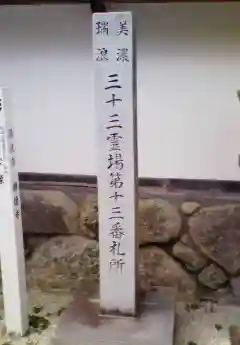 美濃
瑞浪
三十三霊場第十三番札所